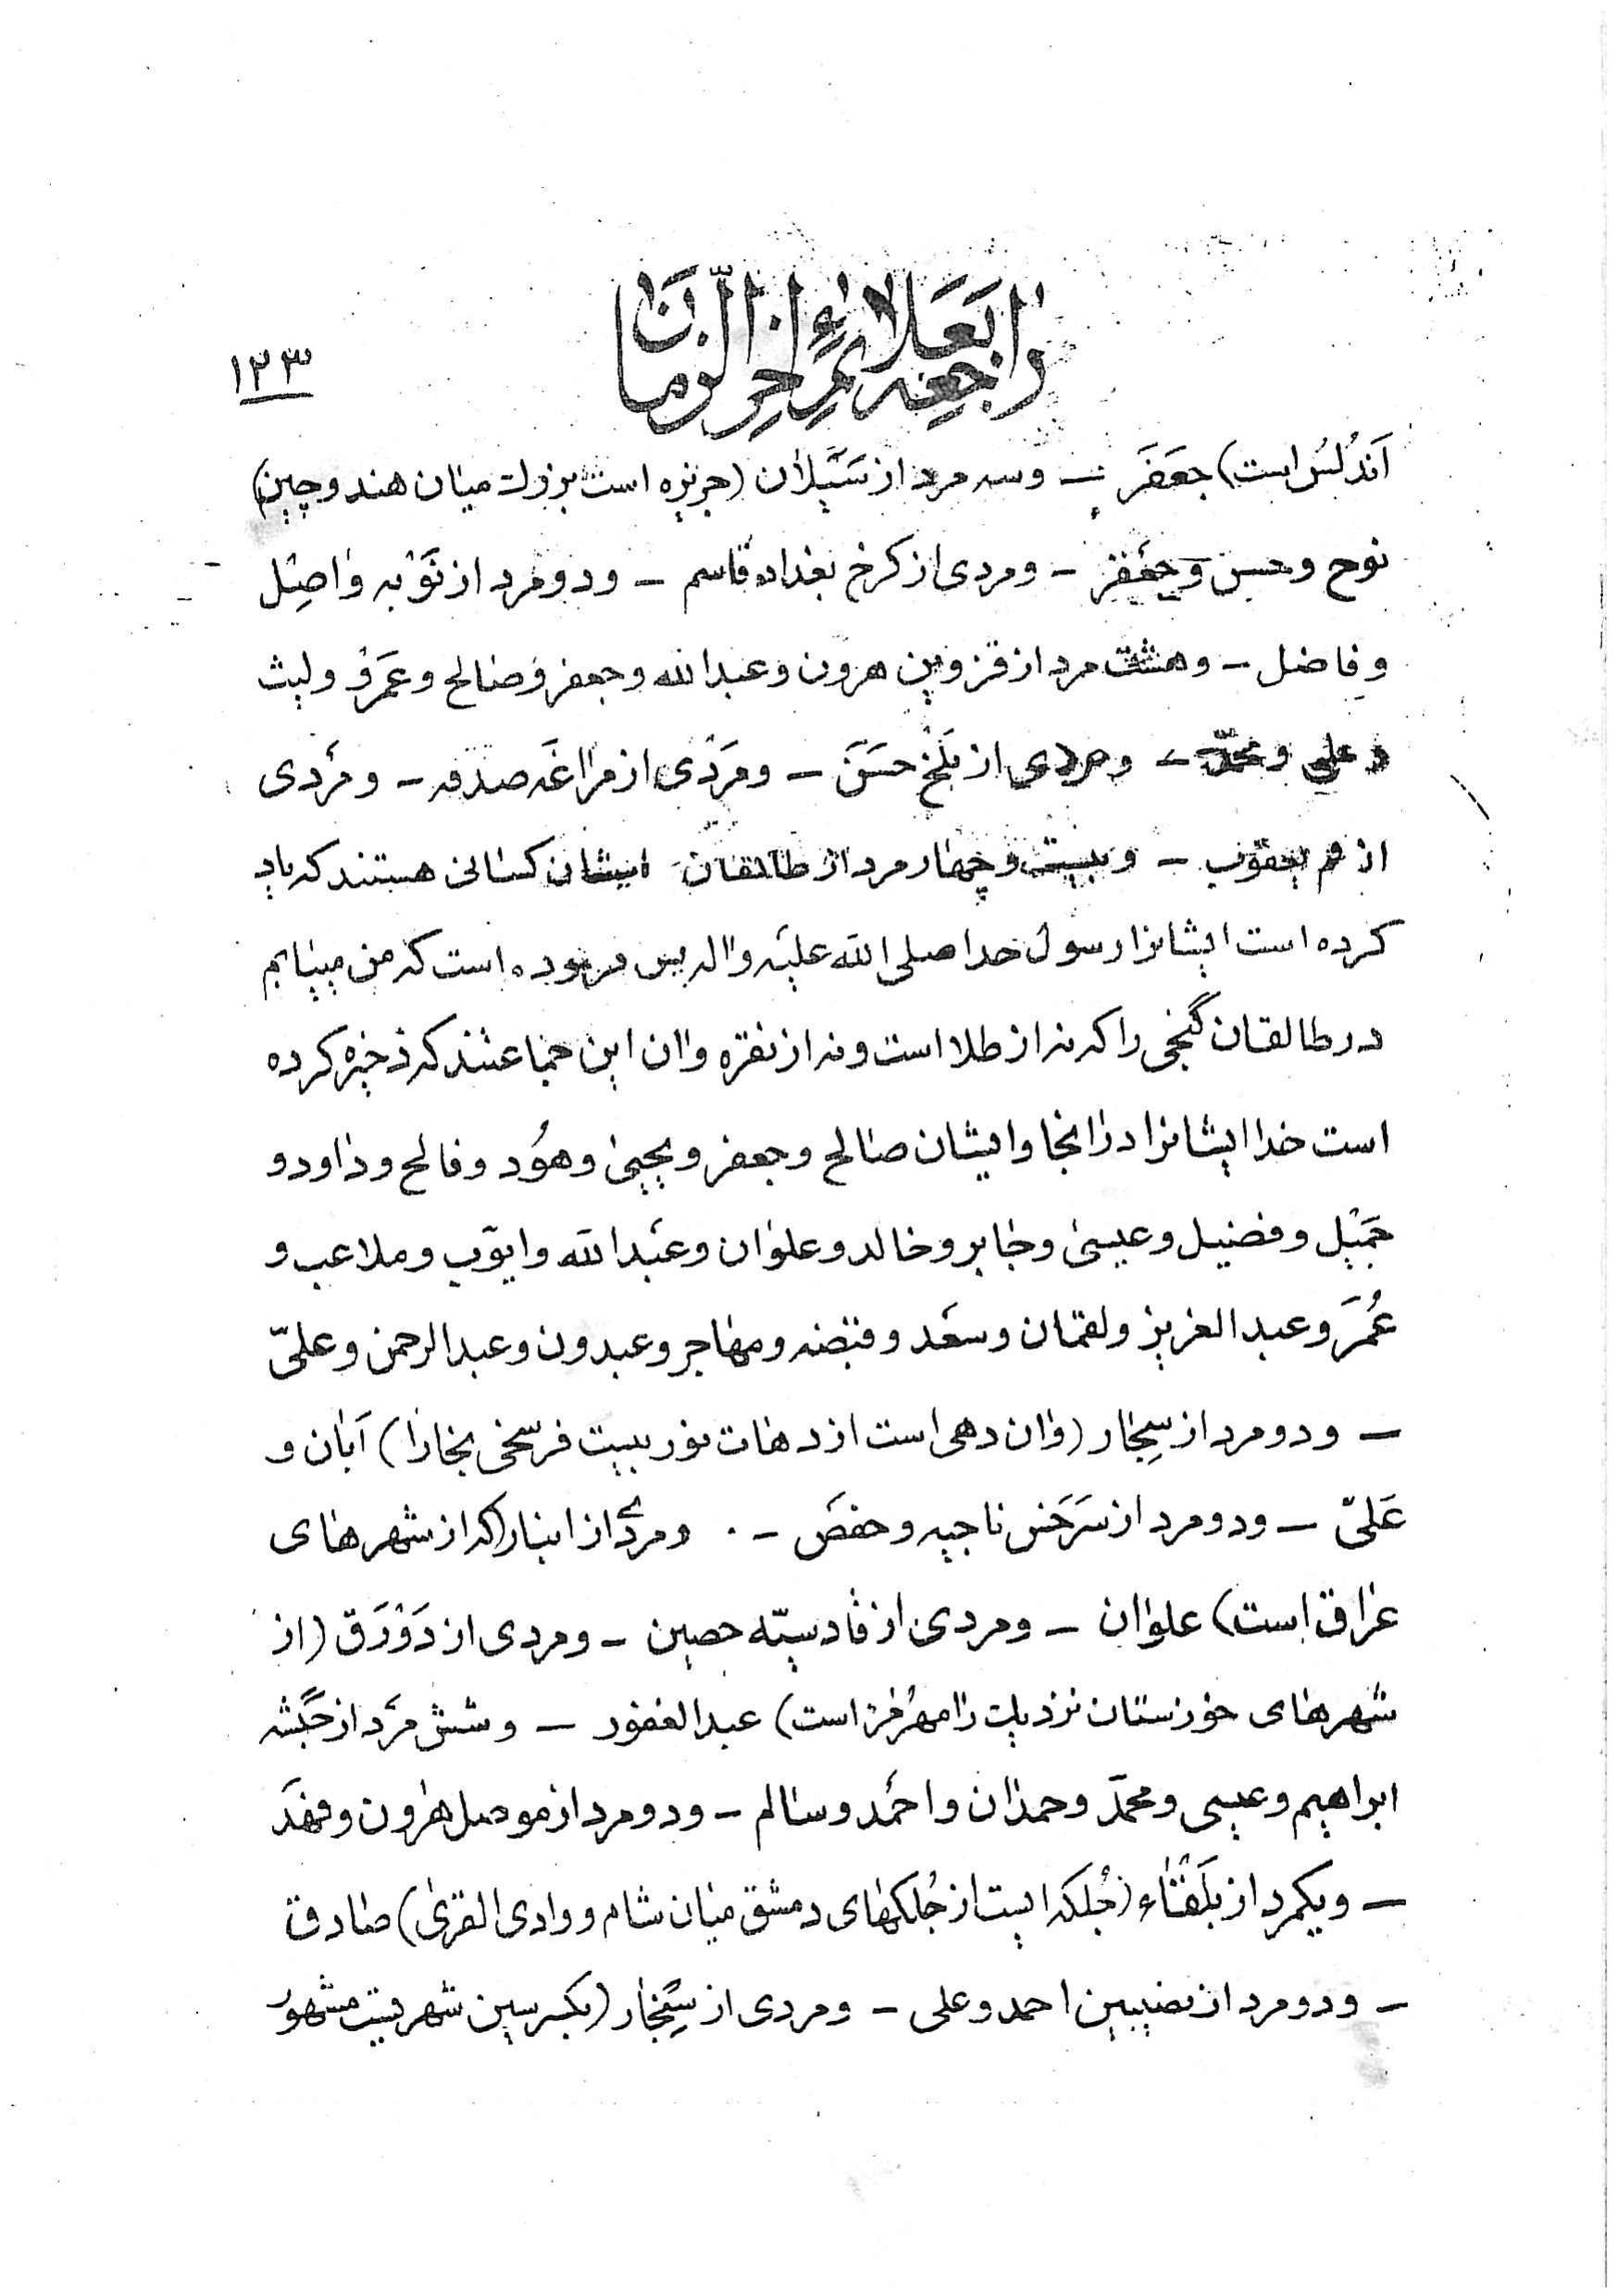 راجعه بعلائم اخر الزمان
۱۲۳
اَندُلسُ است) جعَفَر – و سه مرد از سَیَلان (جزیره است بزرك میان هند و چین)
نوح و حسن و جعفر – و مردی از کرخ بغداد قاسم – و دو مرد از نَوْبه واصِل
و فاضل – و هشت مرد از قزوین هرون و عبدالله و جعفر و صالح و عَمَرْو و لیث
و علی و محمّد – و مردی از بَلَخ حَسَن – و مَرَدْی از مراغَه صدقه – و مَردی
از قم یعقوب – و بیست و چهار مرد از طالقان ایشان کسانی هستند که یاد
کرده است ایشانرا رسول خدا صلی الله علیَه و اله پس فرموده است که من مییابم
در طالقان گنجی را که نه از طلا است و نه از نقره و ان این جماعتند که ذخیره کرده
است خدا ایشانرا در انجا و ایشان صالح و جعفر و یحییٰ و هُود و فالح و داود و
جَمَیْل و فضیل و عیسیٰ و جابر و خالد و علوان و عَبَدالله و ایوّب و ملاعب و
عُمَرَ و عبد العزیز و لقمان و سَعَد و قبضه و مهاجر و عبدون و عبدالرحمن و علیّ
– و دو مرد از سِجار (و ان دهی است از دهات نور بیست فرسخی بخارا) اَبان و
عَلیّ – و دو مرد از سَرَخس ناجیه و حفصَ – . و مردی از انبار (که از شهرهای
عراق است) علوان – و مردی از قادسیّه حصین – و مردی از دَوْرَق (از
شهرهای خوزستان نزدیك رامهرُمُز است) عبدالغفور – و شش مَرد از حَبَشه
ابراهیم و عیسی و محمّد و حمدان و احَمَد و سالم – و دو مرد از موصل هرون و فهَد
– و یکمرد از بَلَقْاء (جُلکه ایست از جُلکهای دمشق میان شام و وادی القریٰ) صادق
– و دو مرد از نصیبین احمد و علی – و مردی از سِنجار (بکسر سین شهریست مشهور